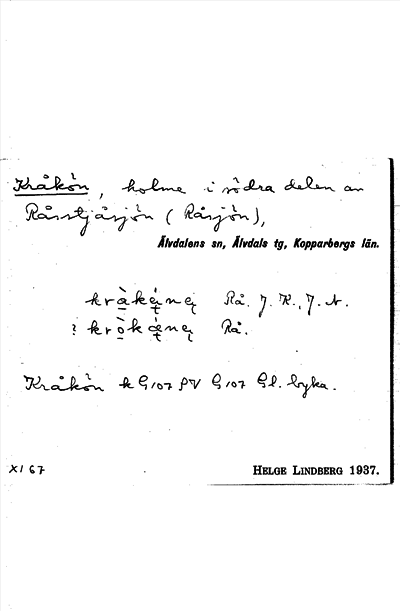 Kråkön, holme i södra delen av
Råsstjåsjön (Råsjön),
Älvdalens sn, Älvdals tg, Kopparbergs län.
Rå. J. K., J. A.
Rå.
Kråkön k G107 PV G107 Gl. byka.
XI 67
HELGE LINDBERG 1937.